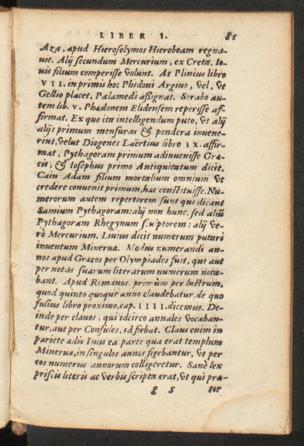 LIBER I. 81
Aza, apud Hierosolymos Hieroboam regna-
uit. Alij secundum Mercurium, ex Creta, Io-
uis filium comperisse volunt. At Plinius libro
VII. in primis hoc Phidoni Argiuo, vel, vt
Gellio placet, Palamedi aßignat. Strabo au-
tem lib. v. Phadonem Elidensem reperisse af-
firmat. Ex quo ita intelligendum puto, vt alij
alijs primum mensuras & pondera inuene-
rint, velut Diogenes Laërtius libro IX. affir-
mat, Pythagoram primum adinuenisse Græ-
cis, & Iosephus primo Antiquitatum dicit
Cain Adam filium mortalium omnium vt
credere conuenit primum, hæc constituisse. Nu-
merorum autem repertorem sunt qui dicant
Samium Pythagoram: alij non hunc, sed alium
Pythagoram Rhegynum sculptorem: alij ve-
rò Mercurium. Liuius dicit numerum putari
inuentum Mineruæ. Modus numerandi an-
nos apud Græcos per Olympiades fuit, qui aut
per notas suarum literarum numerum nota-
bant. Apud Romanos, primum per lustrum,
quod quinto quoque anno claudebatur, de quo
fusius libro proximo, cap. IIII. dicemus. De-
inde per clauos, qui idcirco annales vocaban-
tur, aut per Consules, id fiebat. Clauus enim in
pariete ædis Iouis ea parte qua erat templum
Mineruæ, in singulos annos figebantur, vt per
eos numerus annorum colligeretur. Sanè lex
priscis literis ac verbis scripta erat, vt qui præ-
g 5 tor